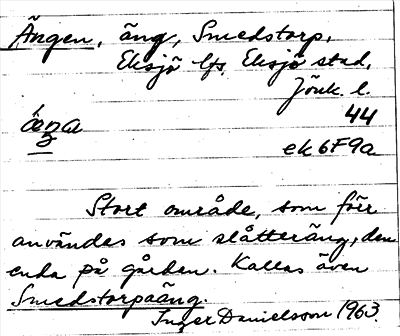 Ängen, äng, Smedstorp,
Eksjö lfs, Eksjö stad,
Jönk. l.
44
ek 6F9a
Stort område, som förr
användes som slåtteräng, den
enda på gården. Kallas även
Smedstorpaäng.
Inger Danielsson 1963.